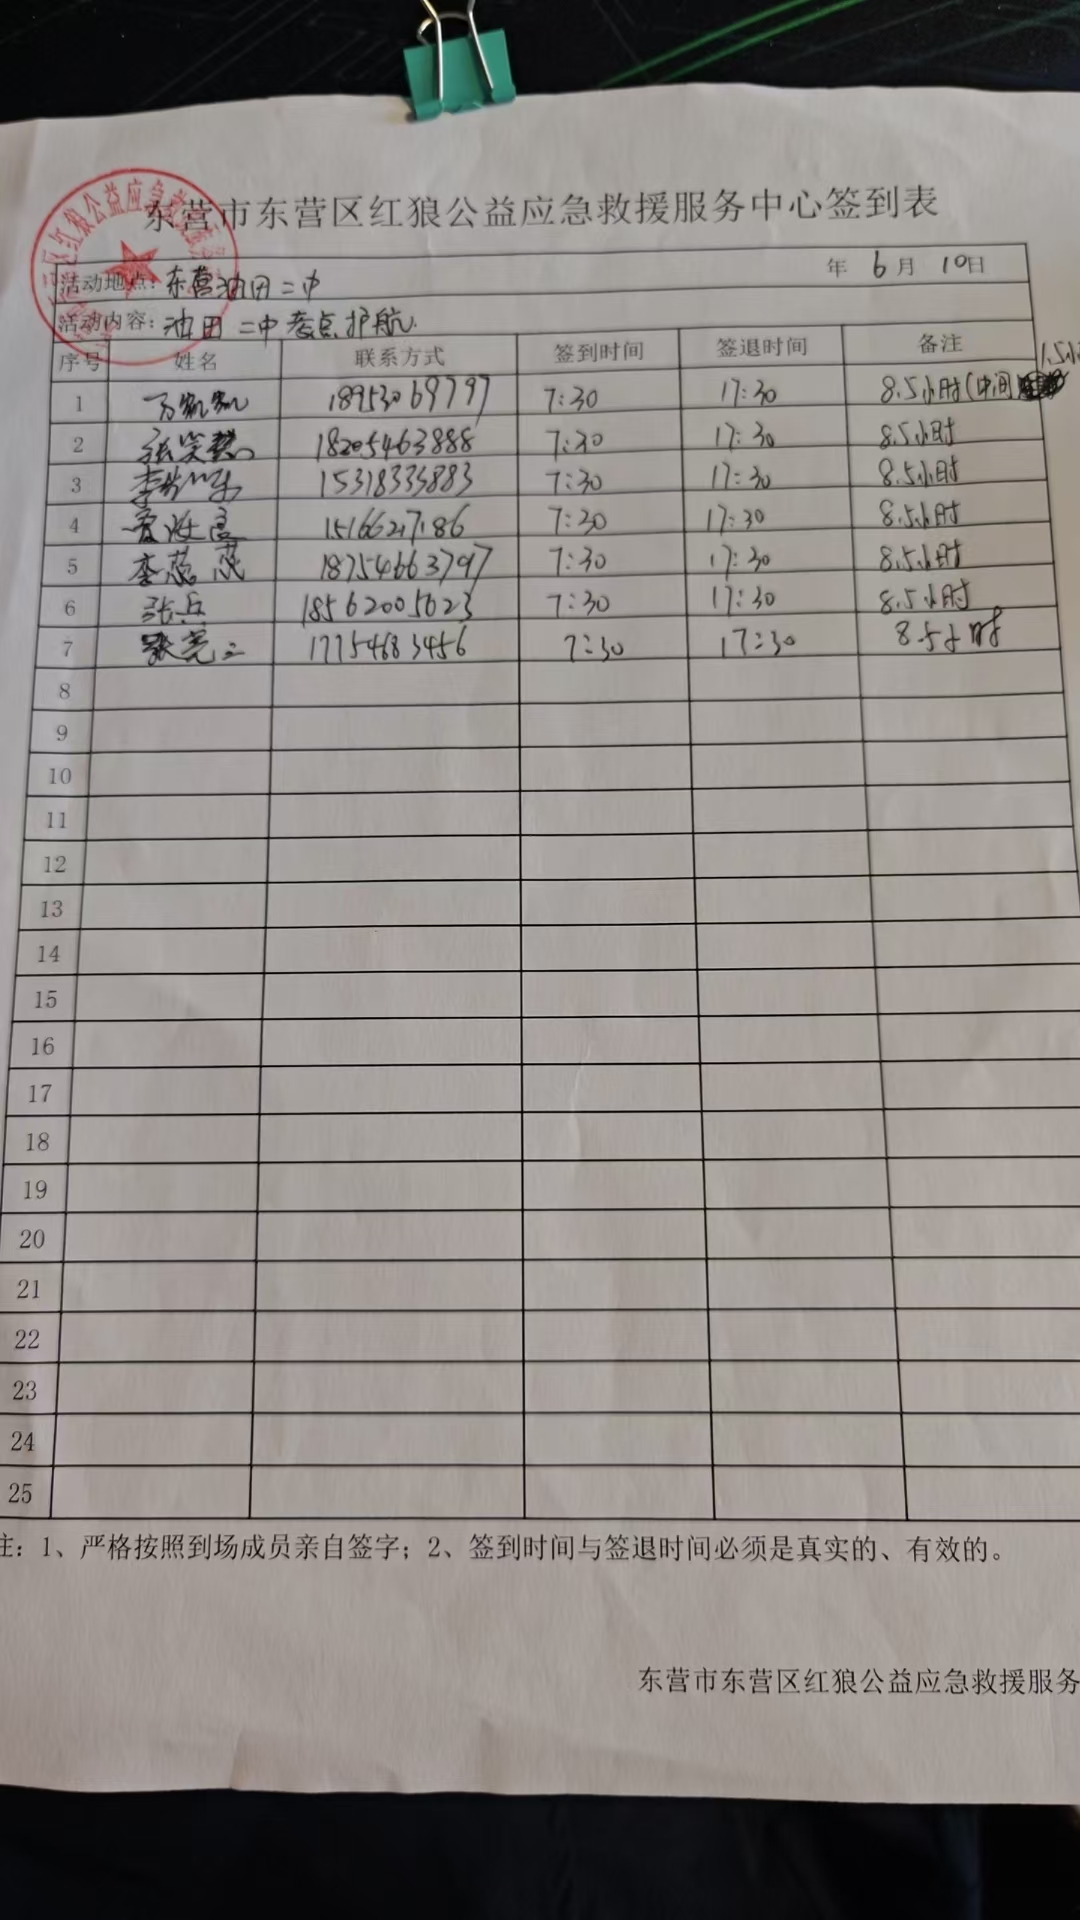 东营市东营区红狼公益应急救援服务中心签到表
年 6月 10日
活动地点: 东营油田二中
活动内容: 油田二中考点护航
序号 姓名 联系方式 签到时间 签退时间 备注
1 18953069797 7:30 17:30 8.5小时(中间 1.5小
2 18205463888 7:30 17:30 8.5小时
3 15318333883 7:30 17:30 8.5小时
4 7:30 17:30 8.5小时
5 李蕊蕊 18754663797 7:30 17:30 8.5小时
6 张兵 18562005623 7:30 17:30 8.5小时
7 张亮亮 17754683456 7:30 17:30 8.5小时
8
9
10
11
12
13
14
15
16
17
18
19
20
21
22
23
24
25
注：1、严格按照到场成员亲自签字；2、签到时间与签退时间必须是真实的、有效的。
东营市东营区红狼公益应急救援服务